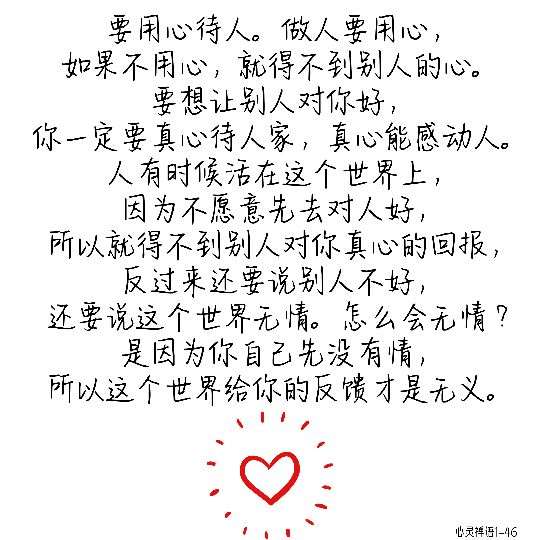 要用心待人。做人要用心，
如果不用心，就得不到别人的心。
要想让别人对你好，
你一定要真心待人家，真心能感动人。
人有时候活在这个世界上，
因为不愿意先去对人好，
所以就得不到别人对你真心的回报，
反过来还要说别人不好，
还要说这个世界无情。怎么会无情？
是因为你自己先没有情，
所以这个世界给你的反馈才是无义。
心灵禅语1-46